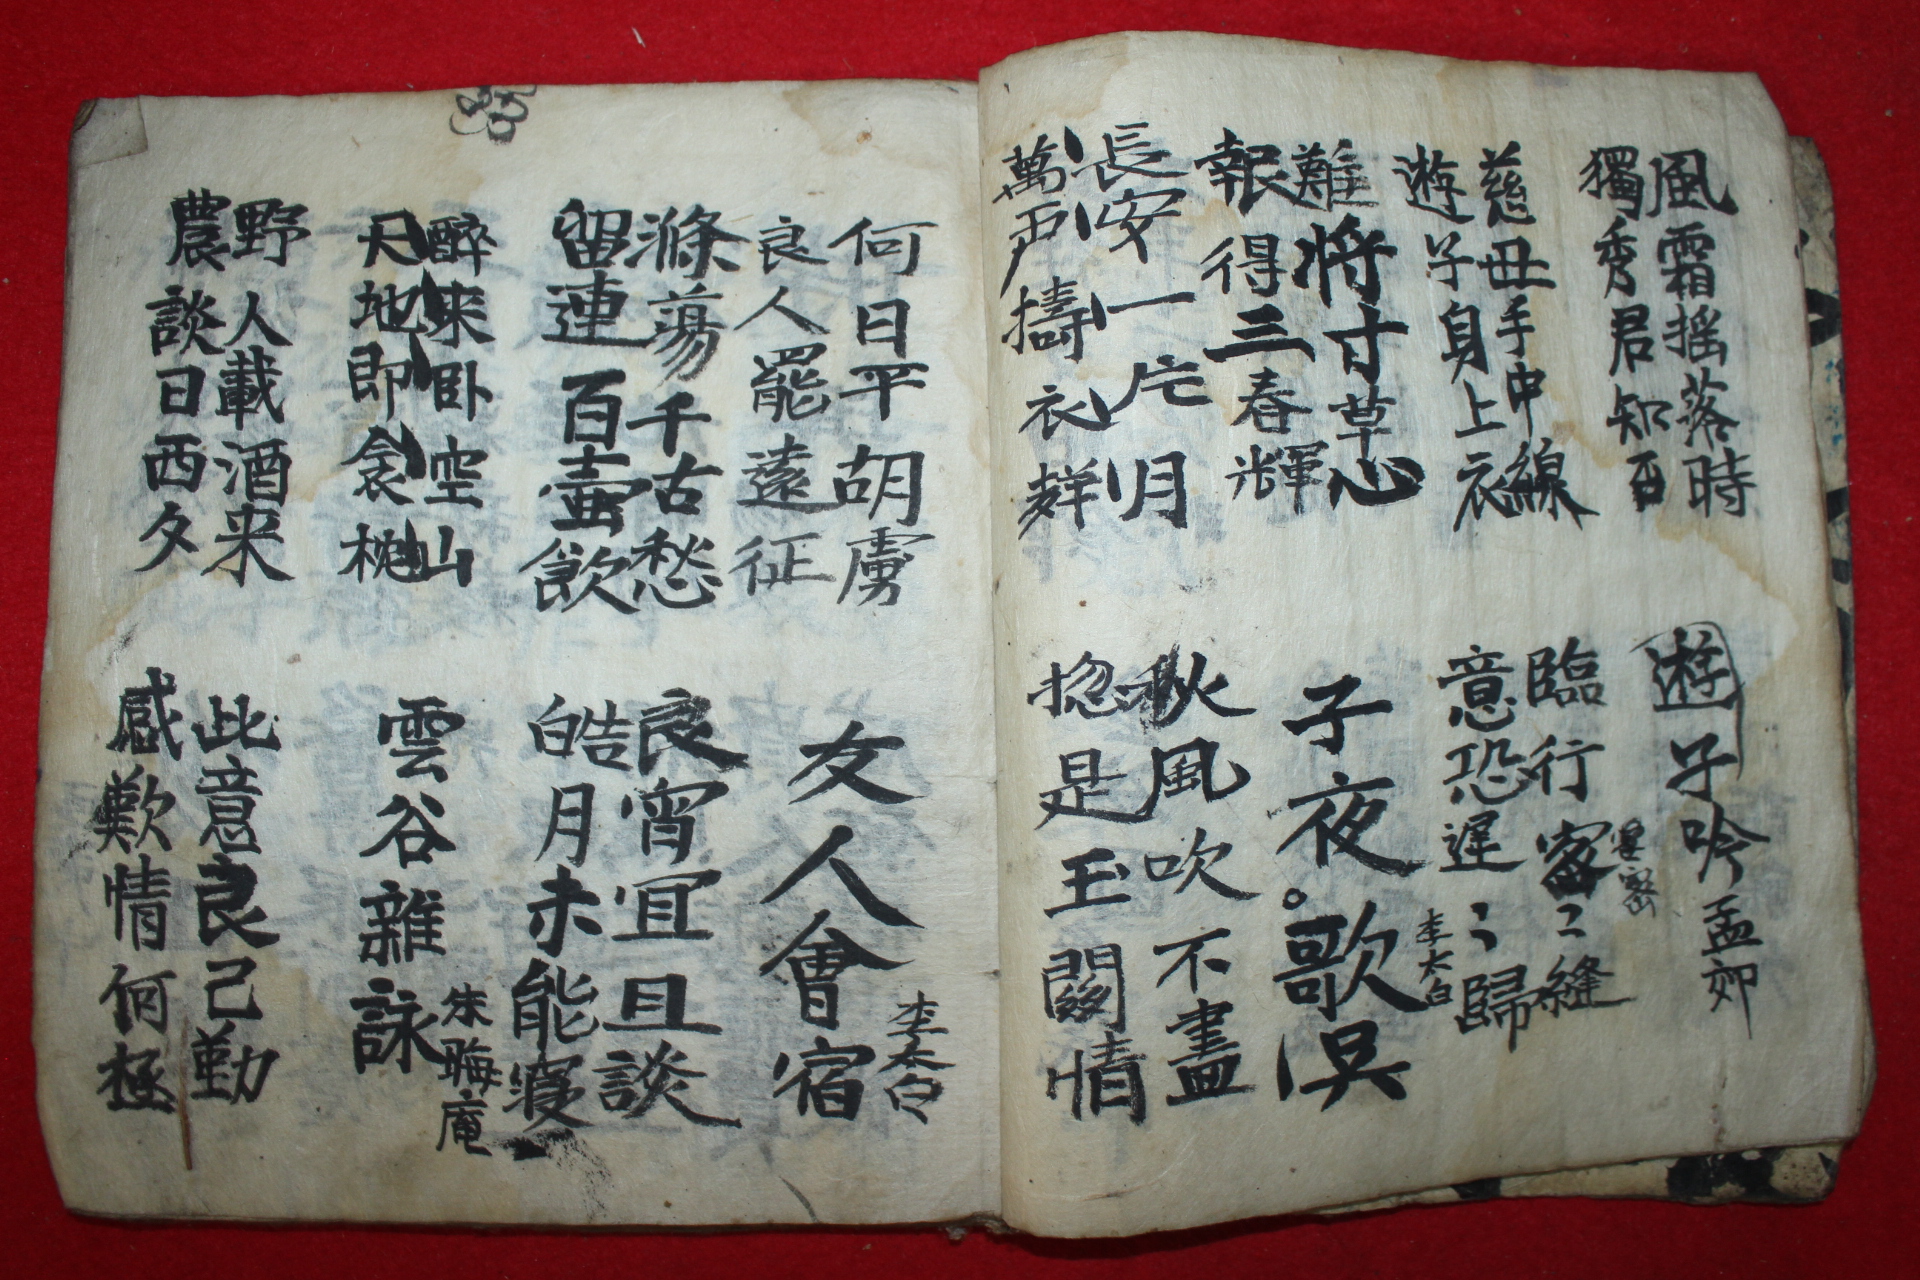 風霜搖落時
獨秀君知否
遊子吟 孟郊
慈母手中線
遊子身上衣
臨行密〻縫
密密
意恐遲〻歸
難將寸草心
報得三春輝
子夜。歌吳 李太白
長安一片月
萬戶擣衣
秋風吹不盡
惣是玉關情
何日平胡虜
良人罷遠征
友人會宿 李太白
滌蕩千古愁
留連百壺飮
良宵宜且談
皓月未能寢
醉来卧空山
天地即衾枕
雲谷雜詠 朱晦庵
野人載酒来
農談日西夕
此意良已勤
感歎情何極